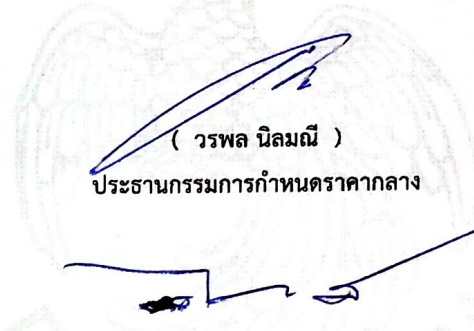 ( วรพล นิลมณี )
ประธานกรรมการกำหนดราคากลาง